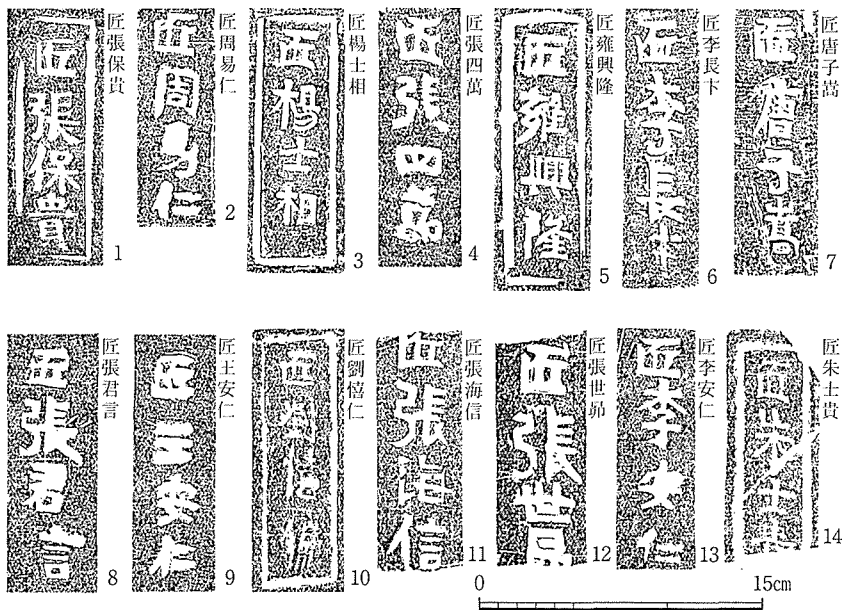 匠張保貴
1
匠周易仁
2
匠楊士相
3
匠張四萬
4
匠雍興隆
5
匠李長卞
6
匠唐子嵩
7
匠張君言
8
匠王安仁
9
匠劉僖仁
10
匠張海信
11
匠張世昴
12
匠李安仁
13
匠朱士貴
14
0 15cm